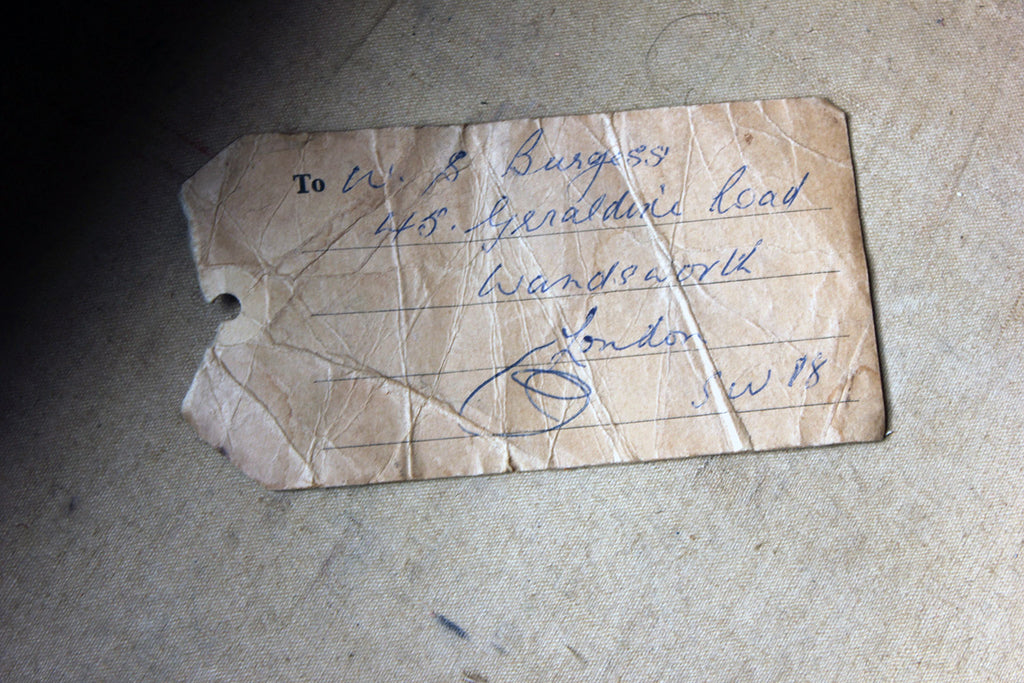 To W. S Burgess
45. Geraldine Road
Wandsworth
London
SW 18